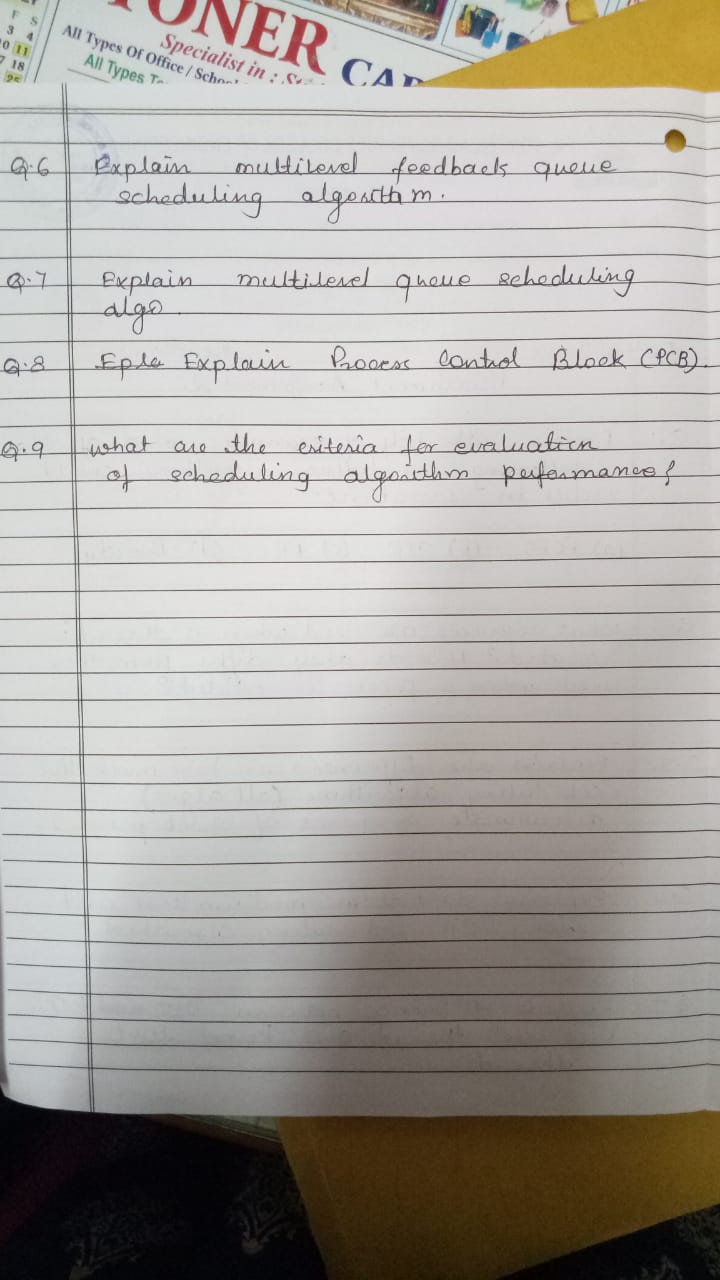 TONER CAR
All Types Of Office / School
Specialist in : St
All Types To
F S
3 4
10 11
17 18
25
Q.6 Explain multilevel feedback queue
scheduling algorithm.
Q.7 Explain multilevel queue scheduling
algo.
Q.8 Eple Explain Process Control Block (PCB).
Q.9 what are the criteria for evaluation
of scheduling algorithm performance?